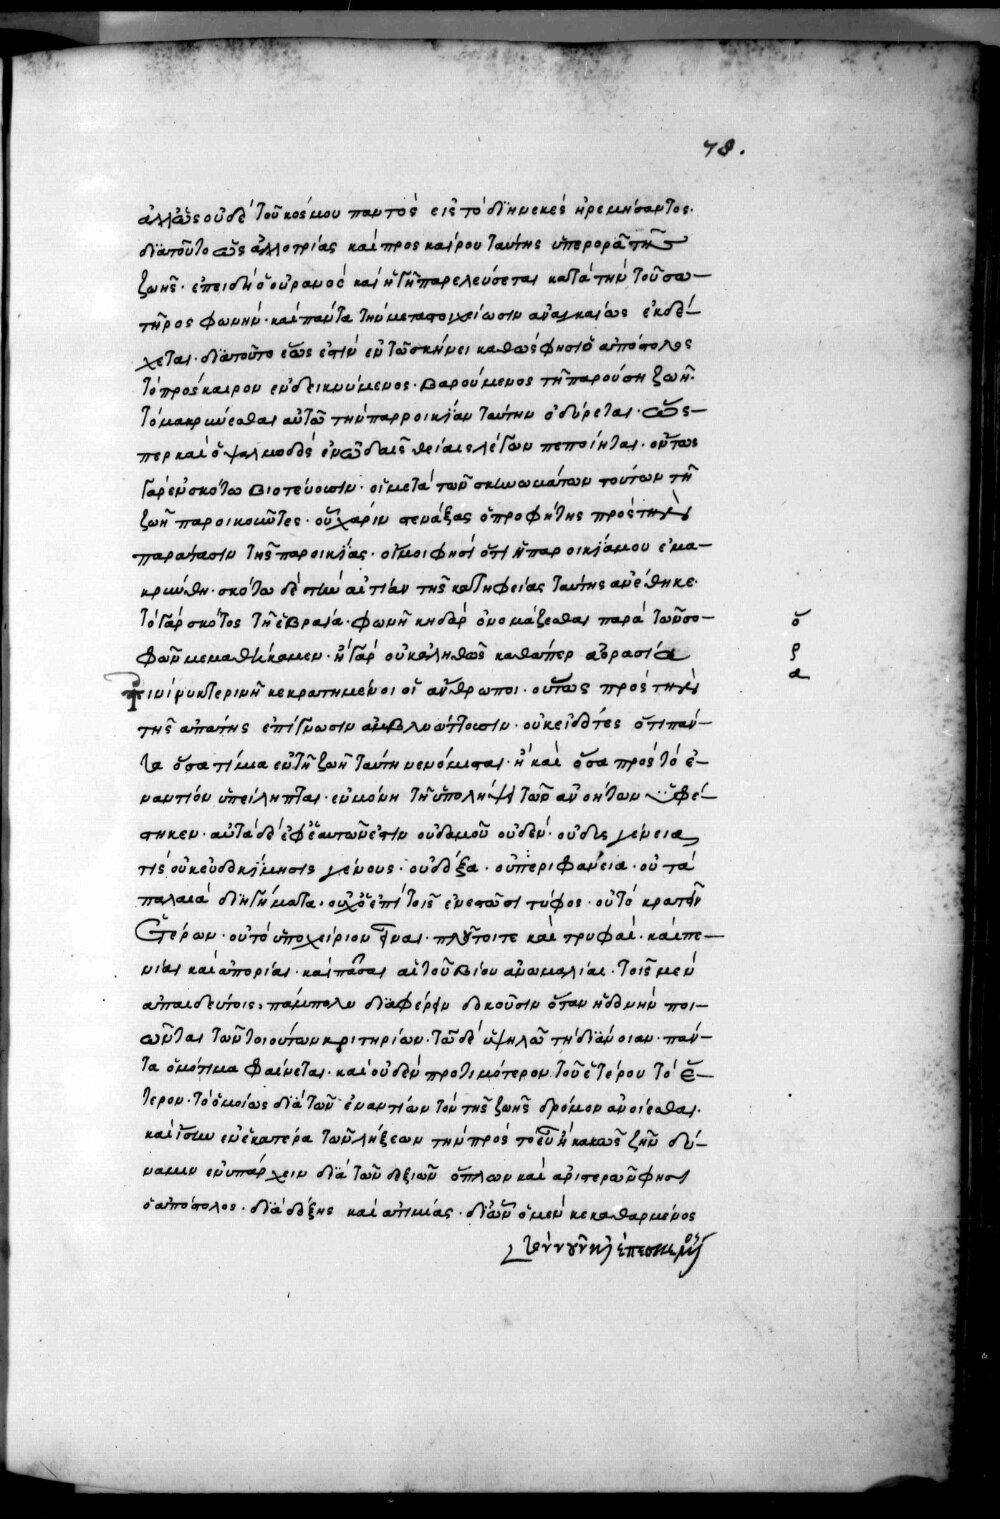 78.
ἀλλ' ὡς οὐδὲ τοῦ κόσμου παντὸς εἰς τὸ διηνεκὲς ἠρεμήσαντος·
διατοῦτο ὡς ἀλλοτρίας καὶ προσκαίρου ταύτης ὑπερορᾶ τῆς
ζωῆς· ἐπειδὴ ὁ οὐρανὸς καὶ ἡ γῆ παρελεύσεται κατὰ τὴν τοῦ σω–
τῆρος φωνήν· καὶ πάντα τὴν μεταστοιχείωσιν ἀναγκαίως ἐκδέ–
χεται· διατοῦτο ἕως ἐστὶν ἐν τῶ σκήνει καθὼς φησὶν ὁ ἀπόστολος
τὸ πρόσκαιρον ἐνδεικνύμενος· βαρούμενος τῆ παρούση ζωῆ·
τὸ μακρύνεσθαι αὐτῶ τὴν παρροικίαν ταύτην ὀδύρεται· ὥς–
περ καὶ ὁ ψαλμωδὸς ἐν ὠδαῖς θείαις λέγων πεποίηται· οὕτως
γὰρ ἐν σκότω βιοτεύουσιν· οἱ μετὰ τῶν σκηνωμάτων τούτων τῆ
ζωῆ παροικοῦντες· οὗ χάριν στενάξας ὁ προφήτης πρὸς τὴν
παράτασιν τῆς παροικίας· οἴμοι φησὶ ὅτι ἡ παροικία μου ἐμα–
κρύνθη· σκότω δὲ τὴν αἰτίαν τῆς κατηφείας ταύτης ἀνέθηκε·
τὸ γὰρ σκότος τῆ ἑβραΐα φωνῆ κηδὰρ ὀνομάζεσθαι παρὰ τῶν σο–
φῶν μεμαθήκαμεν· ἢ γὰρ οὐκ ἀληθῶς καθάπερ ἀορασία
τινὶ νυκτερινῆ κεκρατημένοι οἱ ἄνθρωποι· οὕτως πρὸς τὴν
τῆς ἀπάτης ἐπίγνωσιν ἀμβλυώττουσιν· οὐκ εἰδότες ὅτι πάν–
τα ὅσα τίμια ἐν τῆ ζωῆ ταύτη νενόμισται· ἢ καὶ ὅσα πρὸς τὸ ἐ–
ναντίον ὑπείληπται· ἐν μόνη τῆ ὑπολήψει τῶν ἀνοήτων ὑφέ–
στηκεν· αὐτὰ δὲ ἐφ' ἑαυτῶν ἐστὶν οὐδαμοῦ οὐδέν· οὐ δυσγένεια
τὶς οὐκ εὐδοκίμησις γένους· οὐ δόξα· οὐ περιφάνεια· οὐ τὰ
παλαιὰ διηγήματα· οὐχ ὁ ἐπὶ τοῖς ἐνεστῶσι τύφος· οὐ τὸ κρατεῖν
ἑτέρων· οὐ τὸ ὑποχείριον εἶναι· πλοῦτοί τε καὶ τρυφαί· καὶ πε–
νίαι καὶ ἀπορίαι· καὶ πᾶσαι αἱ τοῦ βίου ἀνωμαλίαι· τοῖς μὲν
ἀπαιδεύτοις, πάμπολυ διαφέρειν δοκοῦσιν ὅταν ἡδονὴν ποι–
ῶνται τῶν τοιούτων κριτηρίων· τῶ δὲ ὑψηλῶ τὴ διάνοιαν· πάν–
τα ὁμότιμα φαίνεται· καὶ οὐδὲν προτιμότερον τοῦ ἑτέρου τὸ ἕ–
τερον· τὸ ὁμοίως διὰ τῶν ἐναντίων τὸν τῆς ζωῆς δρόμον ἀνοίεσθαι·
καὶ ἴσην ἐν ἑκατέρα τῶν λήξεων τὴν πρὸς τὸ εὖ ἢ κακῶς ζῆν δύ–
ναμιν ἐνυπάρχειν διὰ τῶν δεξιῶν ὅπλων καὶ ἀριστερῶν φησι
ὁ ἀπόστολος· διὰ δόξης καὶ ἀτιμίας· δι' ὧν ὁ μὲν κεκαθαρμένος
ὅ
ρ
α